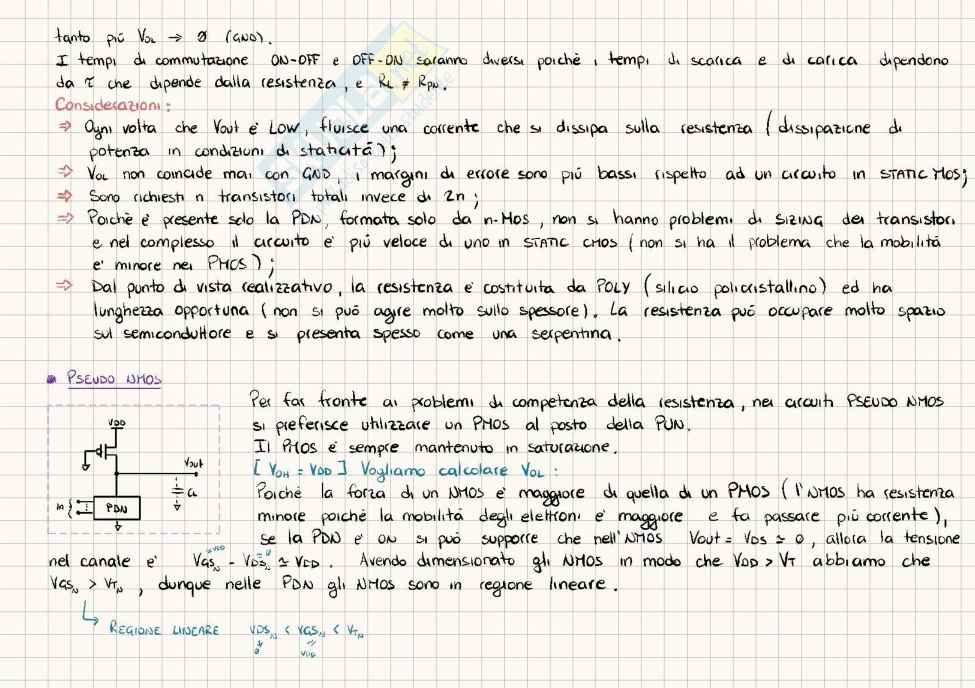 tanto più VOL → 0 (GND).
I tempi di commutazione ON-OFF e OFF-ON saranno diversi poichè i tempi di scarica e di carica dipendono
da τ che dipende dalla resistenza, e RL ≠ RPN.
Considerazioni:
⇒ Ogni volta che Vout è LOW, fluisce una corrente che si dissipa sulla resistenza (dissipazione di
potenza in condizioni di staticità);
⇒ VOL non coincide mai con GND, i margini di errore sono più bassi rispetto ad un circuito in STATIC MOS;
⇒ Sono richiesti n transistori totali invece di 2n;
⇒ Poichè è presente solo la PDN, formata solo da n-MOS, non si hanno problemi di SIZING dei transistori
e nel complesso il circuito è più veloce di uno in STATIC CMOS (non si ha il problema che la mobilità
è minore nei PMOS);
⇒ Dal punto di vista realizzativo, la resistenza è costituita da POLY (silicio policristallino) ed ha
lunghezza opportuna (non si può agire molto sullo spessore). La resistenza può occupare molto spazio
sul semiconduttore e si presenta spesso come una serpentina.
PSEUDO NMOS
Per far fronte ai problemi di competenza della resistenza, nei circuiti PSEUDO NMOS
si preferisce utilizzare un PMOS al posto della PUN.
Il PMOS è sempre mantenuto in saturazione.
[VOH = VDD] Vogliamo calcolare VOL:
Poichè la forza di un NMOS è maggiore di quella di un PMOS (l'NMOS ha resistenza
minore poichè la mobilità degli elettroni è maggiore e fa passare più corrente),
se la PDN è ON si può supporre che nell'NMOS Vout = VDS ≃ 0, allora la tensione
nel canale è VGSN - VDSN ≃ VDD. Avendo dimensionato gli NMOS in modo che VDD > VT abbiamo che
VGSN > VTN, dunque nelle PDN gli NMOS sono in regione lineare.
REGIONE LINEARE VDSN < VGSN < VTN
0 VDD
VDD
Vout
CL
in { PDN